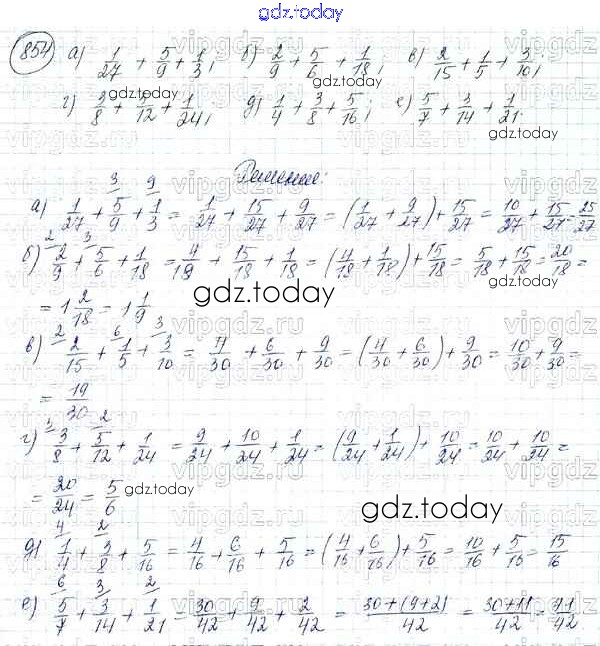 gdz.today
854 а) 1/27 + 5/9 + 1/3; б) 2/9 + 5/6 + 1/18; в) 2/15 + 1/5 + 3/10;
г) 3/8 + 5/12 + 1/24; д) 1/4 + 3/8 + 5/16; е) 5/7 + 3/14 + 1/21.
Решение:
а) 1/27 + 5/9 + 1/3 = 1/27 + 15/27 + 9/27 = (1/27 + 9/27) + 15/27 = 10/27 + 15/27 = 25/27
б) 2/9 + 5/6 + 1/18 = 4/18 + 15/18 + 1/18 = (4/18 + 1/18) + 15/18 = 5/18 + 15/18 = 20/18 =
= 1 2/18 = 1 1/9
в) 2/15 + 1/5 + 3/10 = 4/30 + 6/30 + 9/30 = (4/30 + 6/30) + 9/30 = 10/30 + 9/30 =
= 19/30
г) 3/8 + 5/12 + 1/24 = 9/24 + 10/24 + 1/24 = (9/24 + 1/24) + 10/24 = 10/24 + 10/24 =
= 20/24 = 5/6
д) 1/4 + 3/8 + 5/16 = 4/16 + 6/16 + 5/16 = (4/16 + 6/16) + 5/16 = 10/16 + 5/16 = 15/16
е) 5/7 + 3/14 + 1/21 = 30/42 + 9/42 + 2/42 = 30+(9+2)/42 = 30+11/42 = 41/42